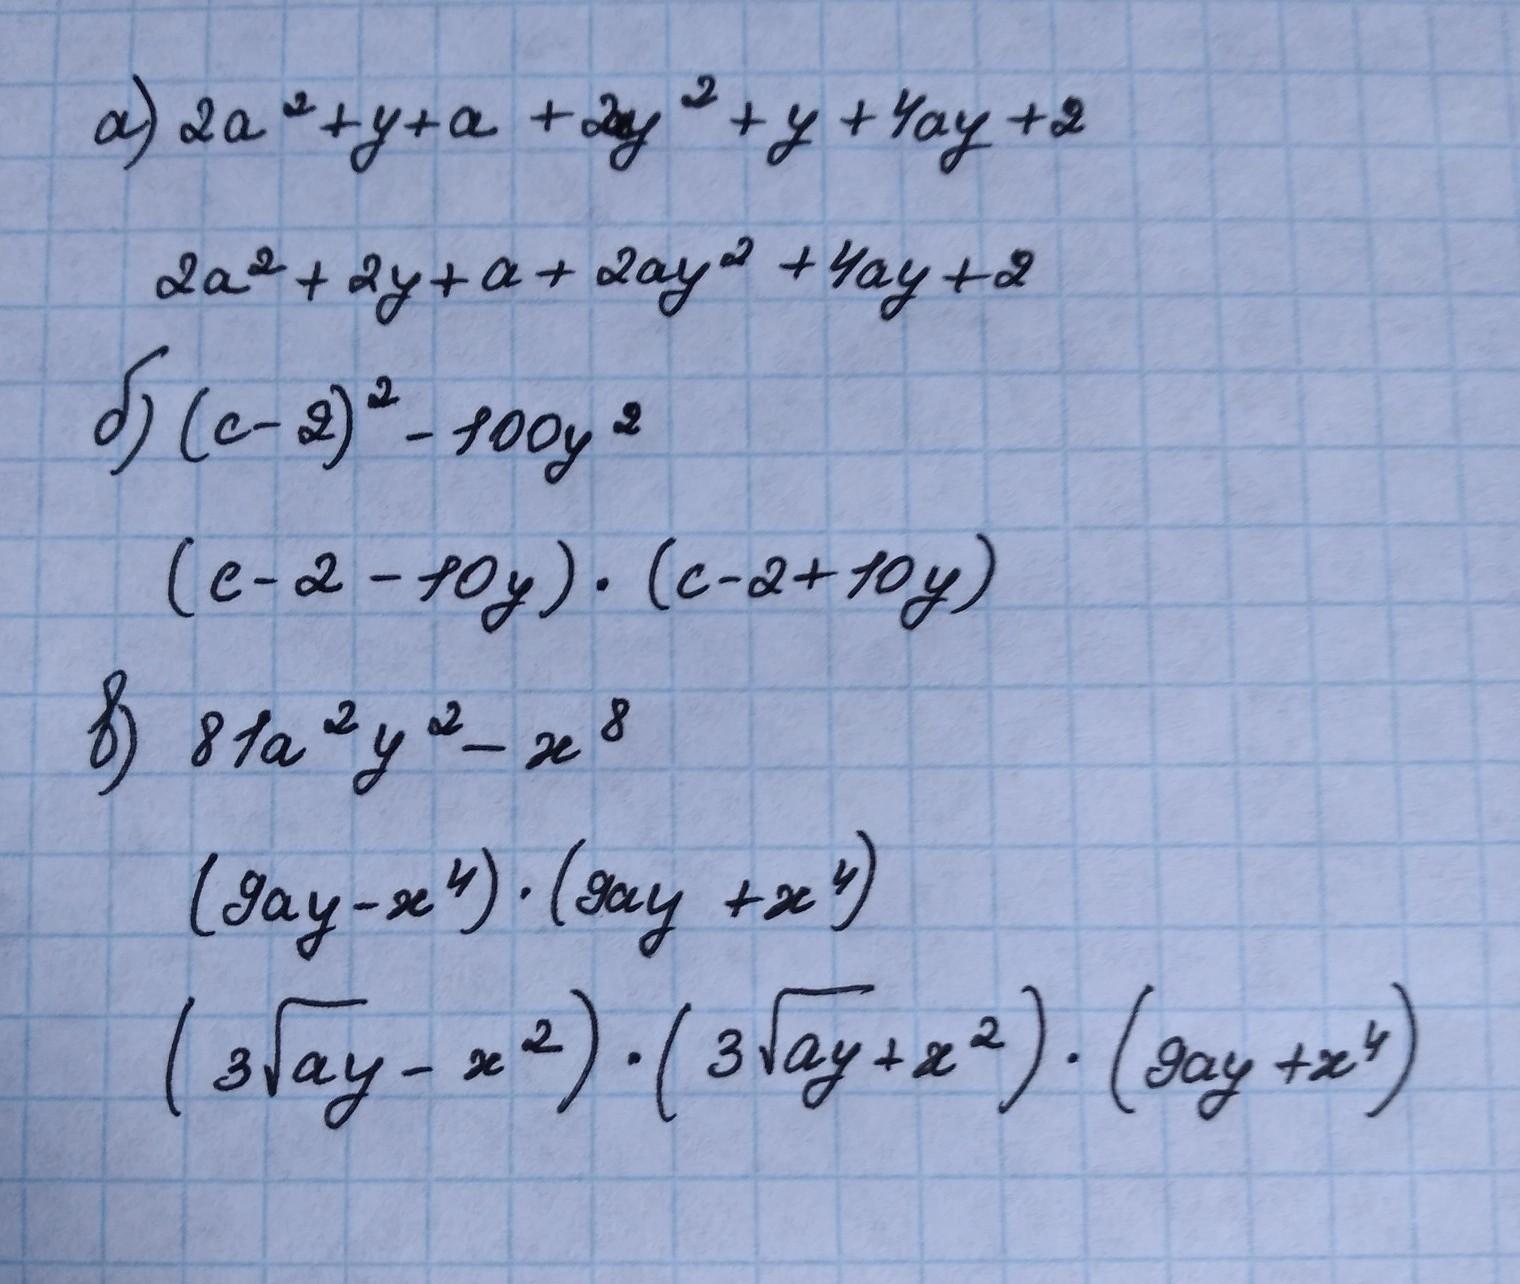 а) 2a² + y + a + 2y² + y + 4ay + 2
2a² + 2y + a + 2ay² + 4ay + 2
б) (c - 2)² - 100y²
(c - 2 - 10y) · (c - 2 + 10y)
в) 81a²y² - x⁸
(9ay - x⁴) · (9ay + x⁴)
(3√ay - x²) · (3√ay + x²) · (9ay + x⁴)